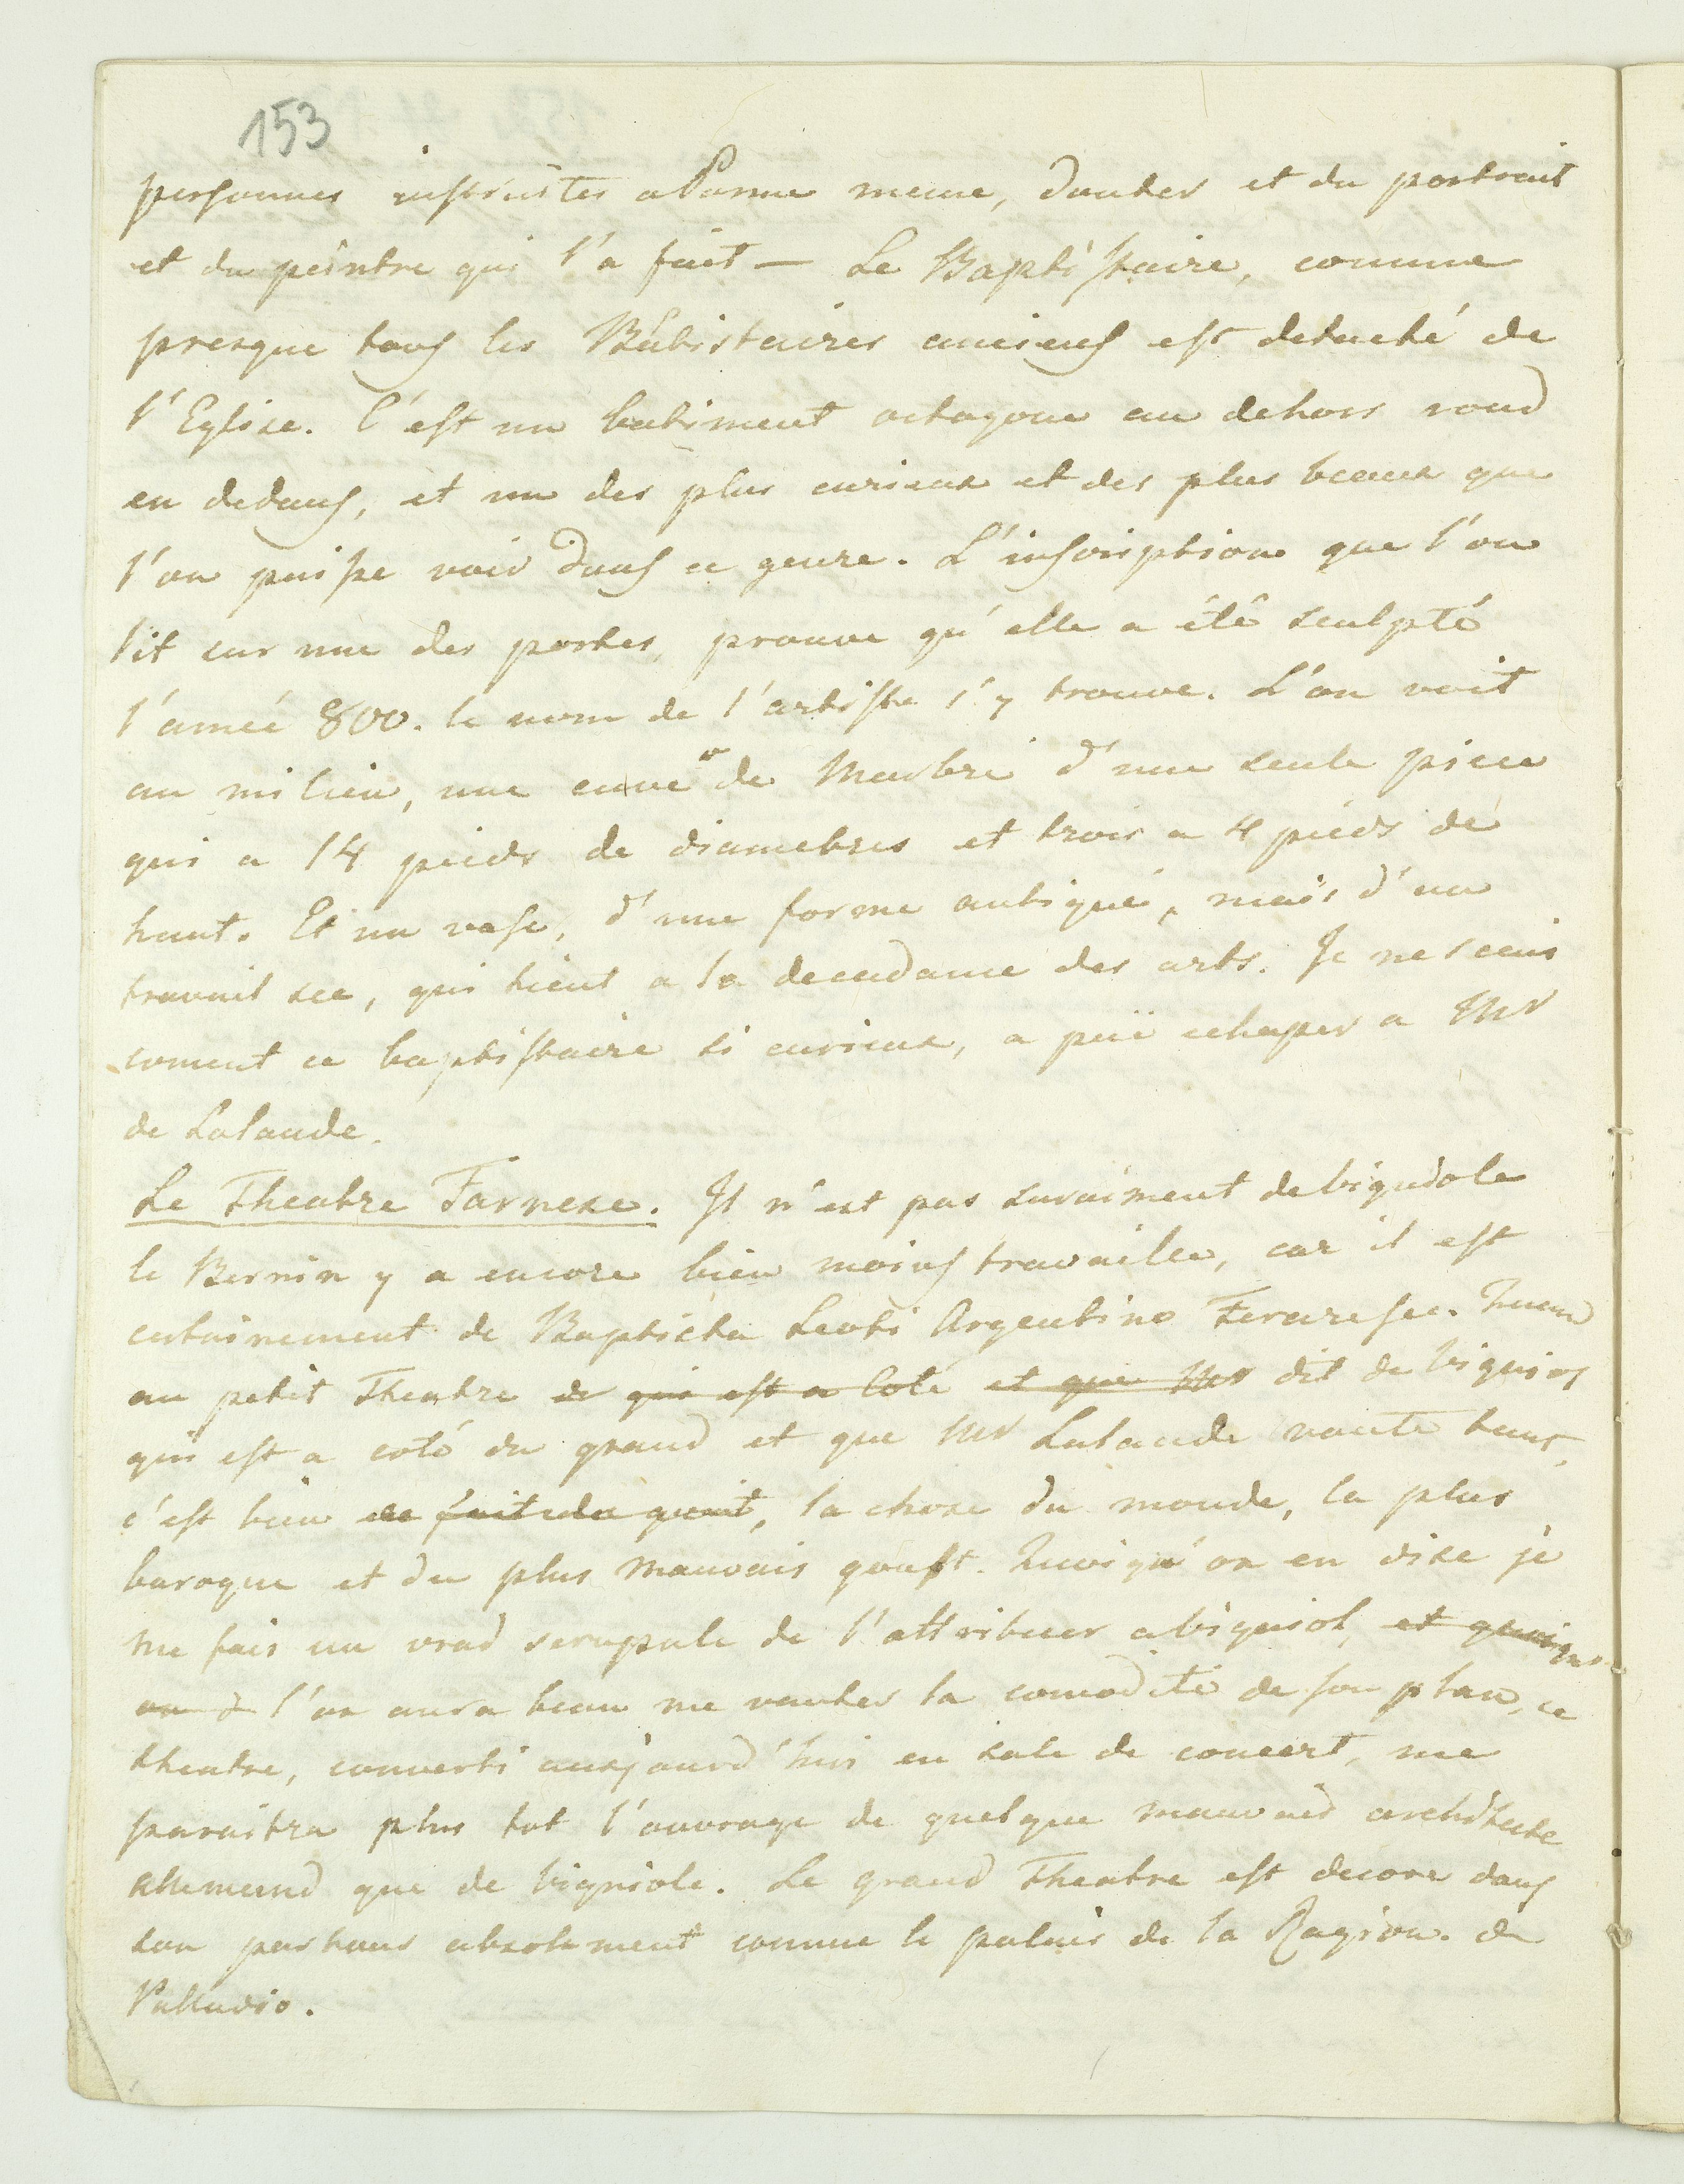 153
personnes instruites a Parme meme, douter et du portrait
et du peintre qui l'a fait — Le Baptistaire, comme
presque tous les Babistaires anciens est detaché de
l'Eglise. C'est un batiment octagone au dehors rond
en dedans, et un des plus curieux et des plus beaux que
l'on puisse voir dans ce genre. L'inscription que l'on
lit sur une des portes, prouve qu'elle a été sculpté
l'année 800. le nom de l'artiste s'y trouve. L'on voit
au milieu, une cuve de Marbre d'une seule piece
qui a 14 pieds de diametres et trois a 4 pieds de
haut. Et un vase, d'une forme antique, mais d'un
travail sec, qui tient a la decadance des arts. Je ne scais
coment ce baptistaire si curieux, a puë echaper a Mr
de Lalande.
Le Theatre Farnese. Il n'est pas suraiment de bignole
le Bernin y a encore bien moins travaille, car il est
certainement de Baptista Leoti Argentino Ferarese. Quand
au petit Theatre de qui est a Coté et que Mr dit de bignios
qui est a coté du grand et que Mr Lalande vante tant,
c'est bien de fait du gout, la chose du monde, la plus
baroque et du plus mauvais goust. Quoiqu'on en dise je
me fais un vrai scrupule de l'attribuer a bigniol, et quoique
on d l'on aura beau me vanter la comodité de son plan, ce
theatre, converti aujourd'hui en sale de concert, me
paraitra plus tot l'ouvrage de quelque mauvais architecte
allemand que de bigniole. Le grand Theatre est decore dans
son pourtour absolument comme le palais de la Ragion. de
Palladio.